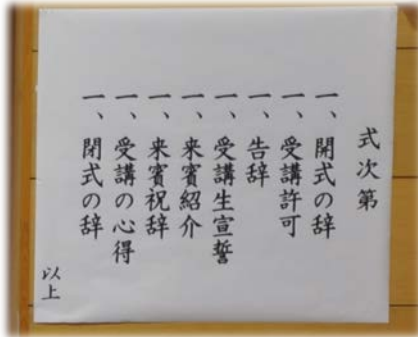 式次第
一、開式の辞
一、受講許可
一、告辞
一、受講生宣誓
一、来賓紹介
一、来賓祝辞
一、受講の心得
一、閉式の辞
以上